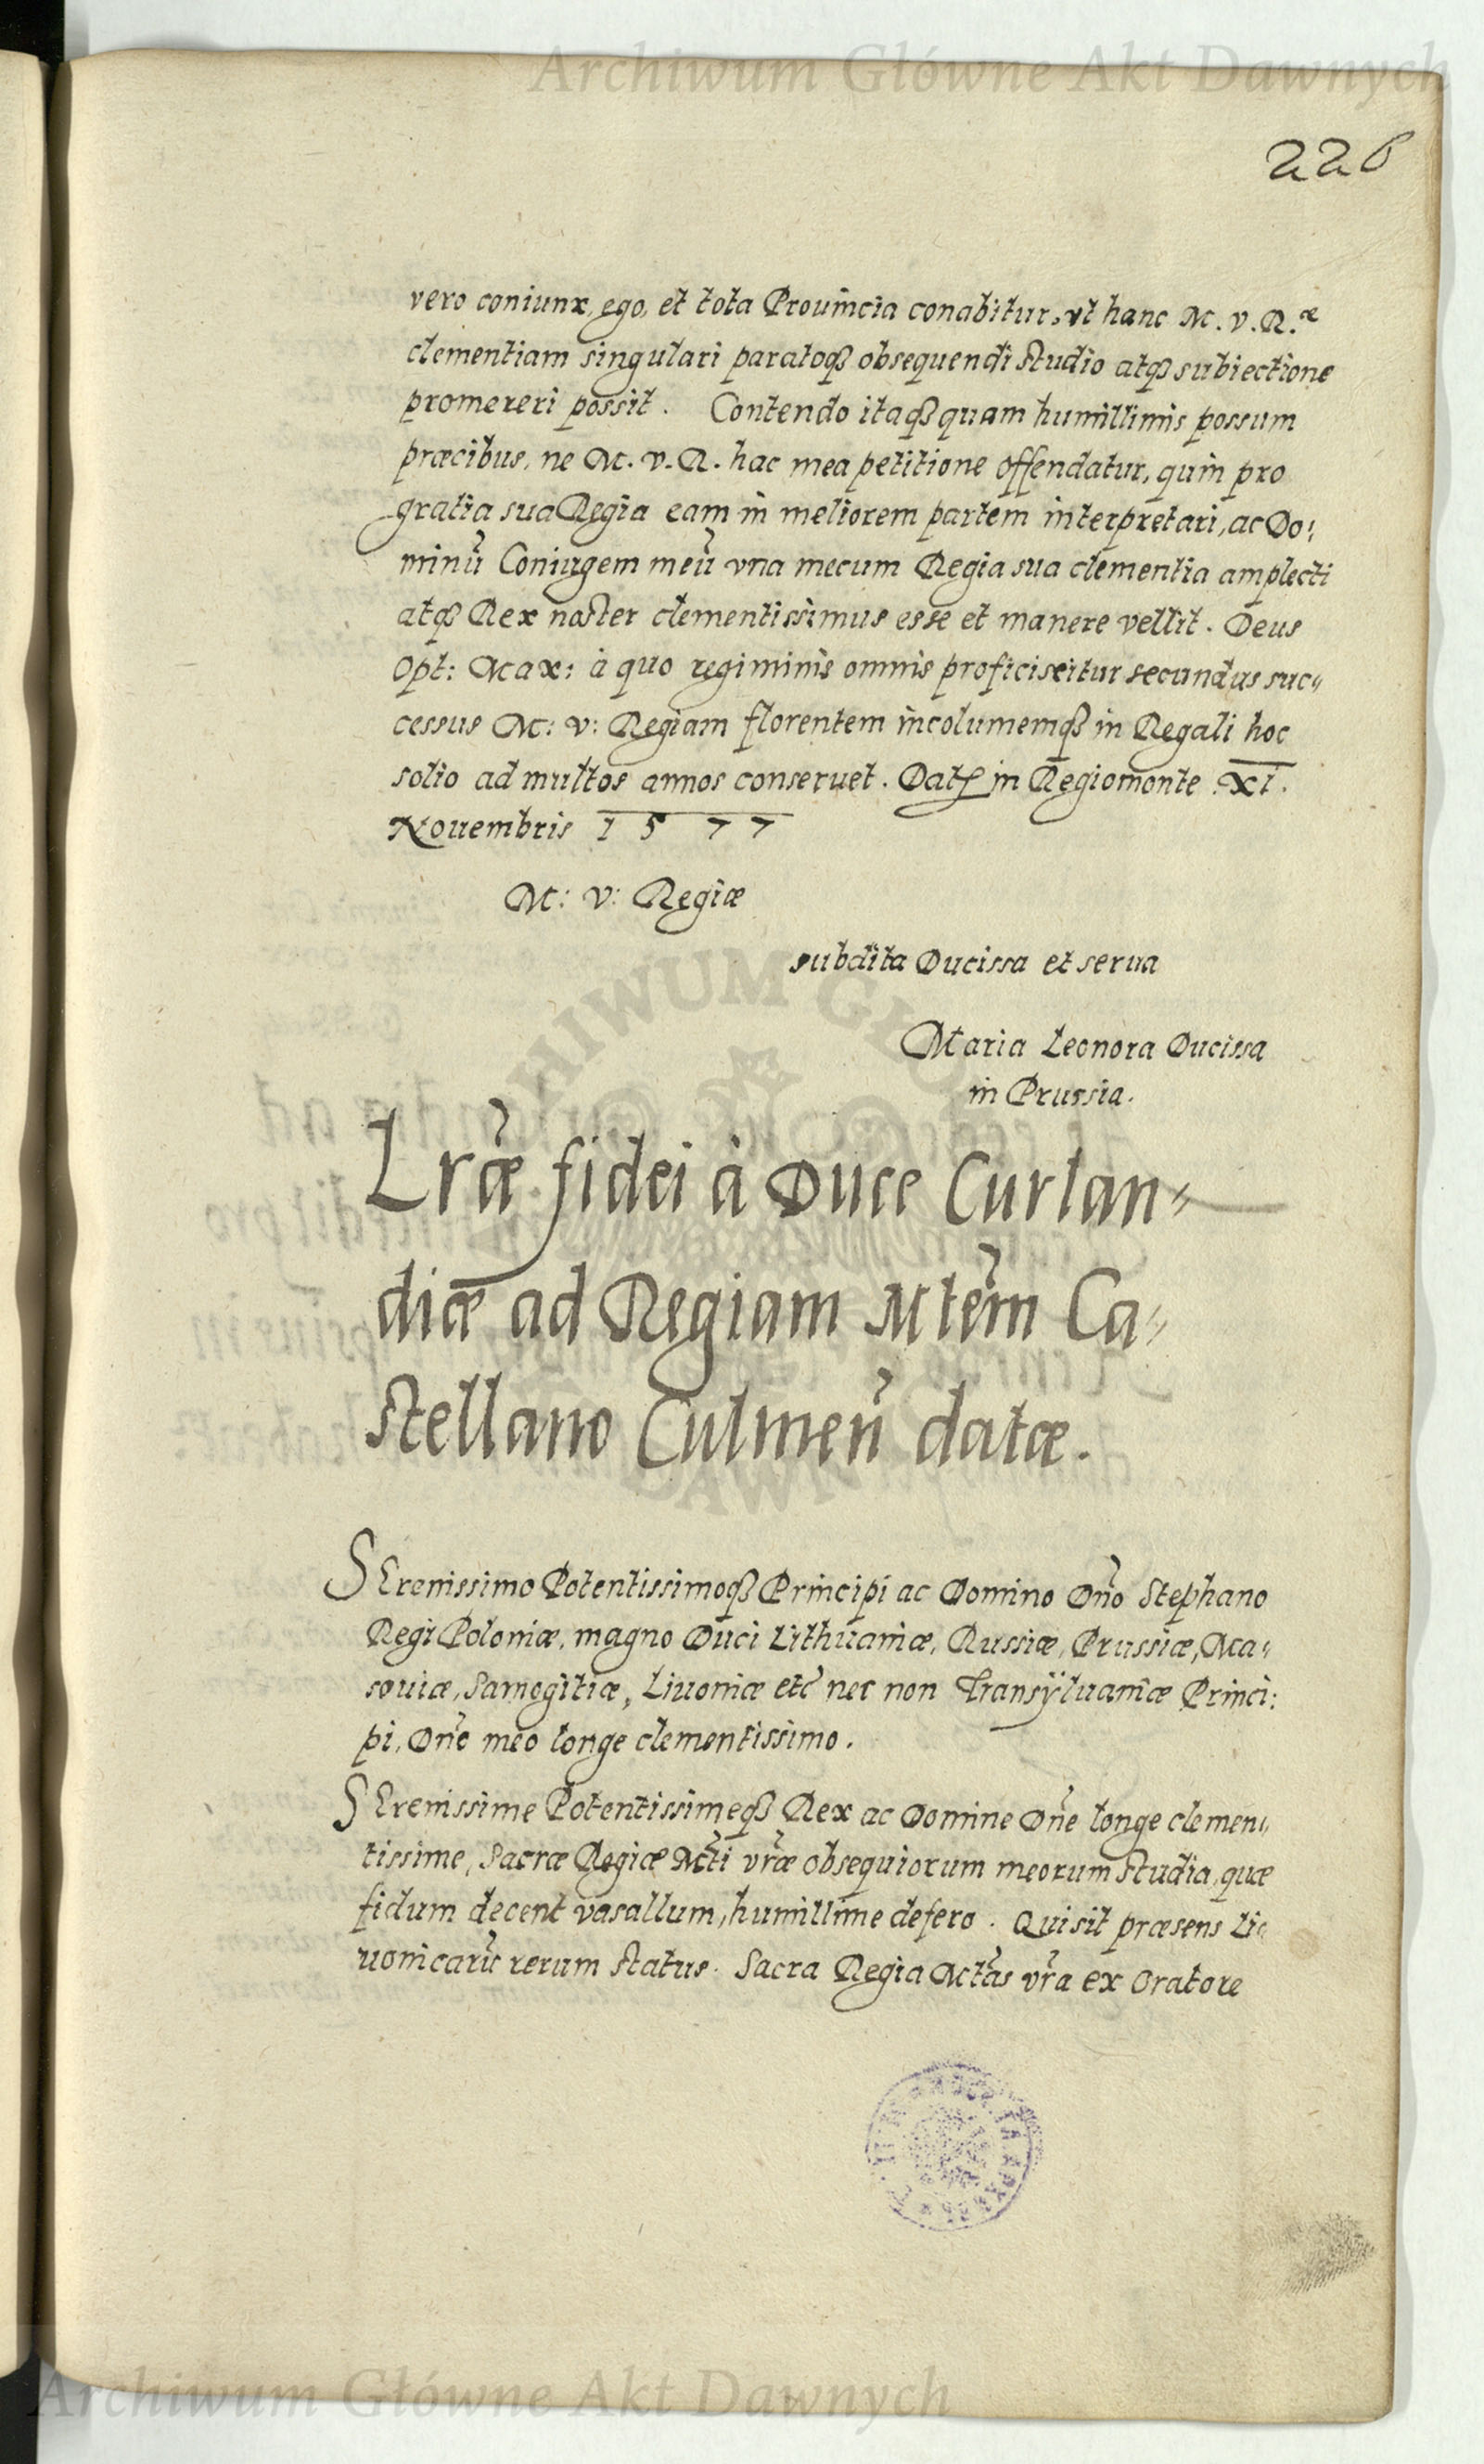 Archiwum Główne Akt Dawnych
226
vero coniunx, ego, et tota Prouincia conabitur, vt hanc M. v. R.æ
clementiam singulari paratoq₃ obsequendi studio atq₃ subiectione
promereri possit. Contendo itaq₃ quam humillimis possum
præcibus, ne M. v. R. hac mea petitione offendatur, quin pro
gratia sua Regia eam in meliorem partem interpretari, ac Do:
minũ Coniugem meũ vna mecum Regia sua clementia amplecti
atq₃ Rex noster clementissimus esse et manere vellit. Deus
Opt: Max: à quo regiminis omnis proficiscitur secundus suc„
cessus M: v: Regiam florentem incolumemq₃ in Regali hoc
solio ad multos annos conseruet. Datꝭ in Regiomonte XI.
Nouembris 1577
M: v: Regiæ
subdita Ducissa et serua
Maria Leonora Ducissa
in Prussia.
Lr̃æ fidei à Duce Curlan„
diæ ad Regiam Mtẽm Ca„
stellano Culmeñ datæ.
SErenissimo Potentissimoq₃ Principi ac Domino Dño Stephano
Regi Poloniæ, magno Duci Lithuaniæ, Russiæ, Prussiæ, Ma„
souiæ, Samogitiæ, Liuoniæ etc̃ nec non Transÿluaniæ Princi:
pi, Dño meo longe clementissimo.
SErenissime Potentissimeq₃ Rex ac Domine Dñe longe clemen„
tissime, Sacræ Regiæ Mt̃i vr̃æ obsequiorum meorum studia, quæ
fidum decent vasallum, humillime defero. Qui sit præsens Li„
uonicarũ rerum status. Sacra Regia Mt̃as vr̃a ex Oratore
Archiwum Główne Akt Dawnych